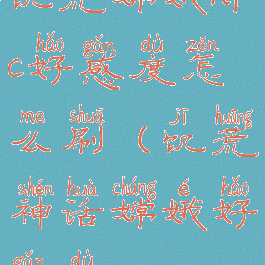 C好感度怎
hǎo gǎn dù zěn
么刷(饥荒
me shuā jī huāng
神话嫦娥好
shén huà cháng é hǎo
gǎn dù